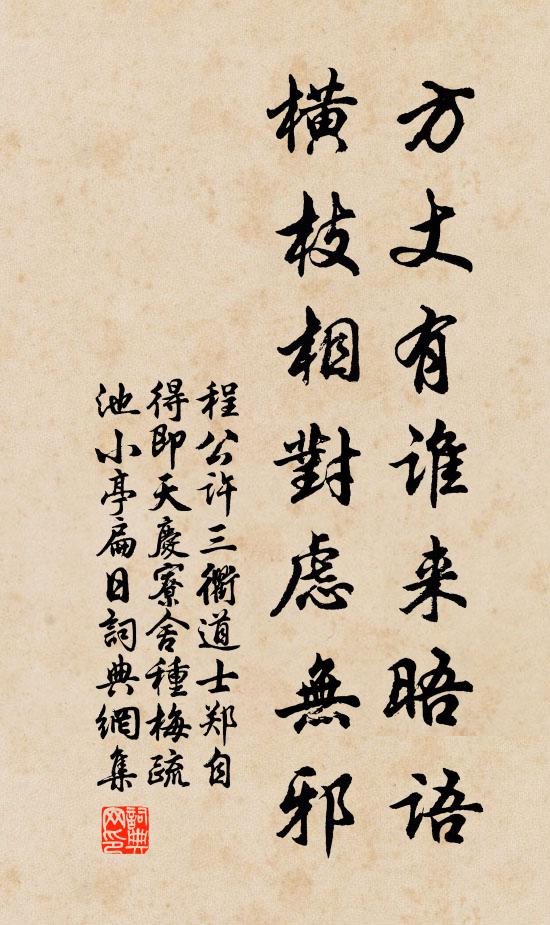 方丈有谁来晤语
横枝相對慮無邪
程公许三衢道士郑自
得即天慶寮舍種梅疏
池小亭扁日詞典網集
詞典网印